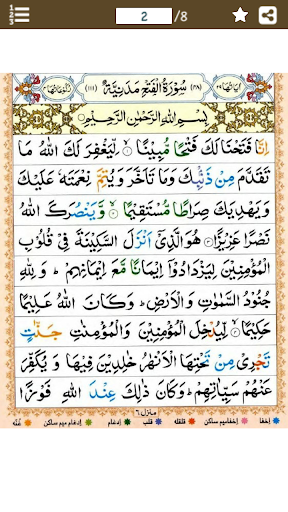 2 /8
اٰيَاتُهَا ٢٩ (٤٨) سُوْرَةُ الْفَتْحِ مَدَنِيَّةٌ (١١١) رُكُوْعَاتُهَا ٤
بِسْمِ اللّٰهِ الرَّحْمٰنِ الرَّحِيْمِ
اِنَّا فَتَحْنَا لَكَ فَتْحًا مُّبِيْنًا ۙ لِّيَغْفِرَ لَكَ اللّٰهُ مَا
تَقَدَّمَ مِنْ ذَنْۢبِكَ وَمَا تَاَخَّرَ وَيُتِمَّ نِعْمَتَهٗ عَلَيْكَ
وَيَهْدِيَكَ صِرَاطًا مُّسْتَقِيْمًا ۙ وَّيَنْصُرَكَ اللّٰهُ
نَصْرًا عَزِيْزًا ۝ هُوَ الَّذِيْۤ اَنْزَلَ السَّكِيْنَةَ فِيْ قُلُوْبِ
الْمُؤْمِنِيْنَ لِيَزْدَادُوْۤا اِيْمَانًا مَّعَ اِيْمَانِهِمْ ؕ وَلِلّٰهِ
جُنُوْدُ السَّمٰوٰتِ وَالْاَرْضِ ؕ وَكَانَ اللّٰهُ عَلِيْمًا
حَكِيْمًا ۙ لِّيُدْخِلَ الْمُؤْمِنِيْنَ وَالْمُؤْمِنٰتِ جَنّٰتٍ
تَجْرِيْ مِنْ تَحْتِهَا الْاَنْهٰرُ خٰلِدِيْنَ فِيْهَا وَيُكَفِّرَ
عَنْهُمْ سَيِّاٰتِهِمْ ؕ وَكَانَ ذٰلِكَ عِنْدَ اللّٰهِ فَوْزًا
منزل ٦
إخفا إخفامیم ساکن قلقله قلب إدغام إدغام میم ساکن غنّه